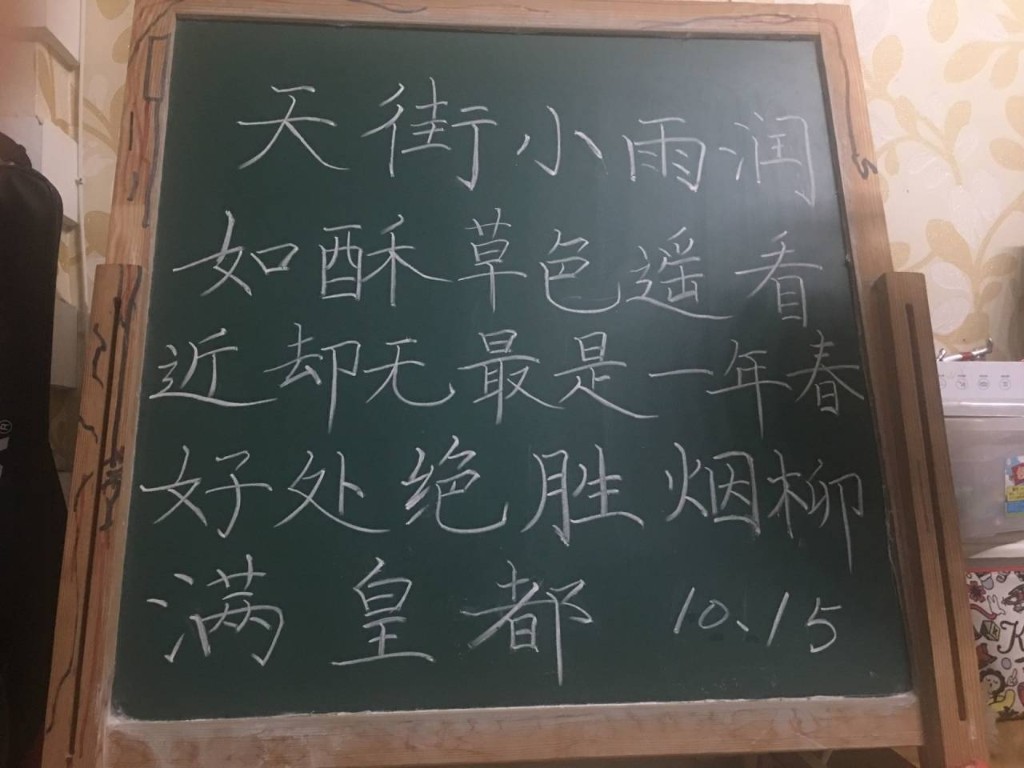 天街小雨润
如酥草色遥看
近却无最是一年春
好处绝胜烟柳
满皇都 10.15